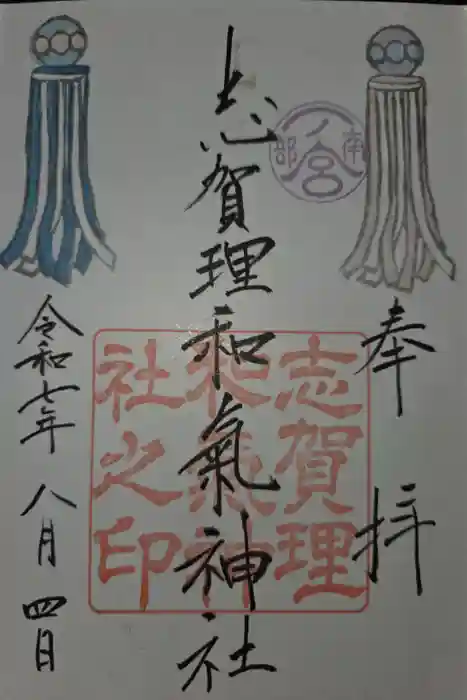 奉拝
南部一ノ宮
志賀理和氣神社
志賀理
和氣神
社之印
令和七年八月四日